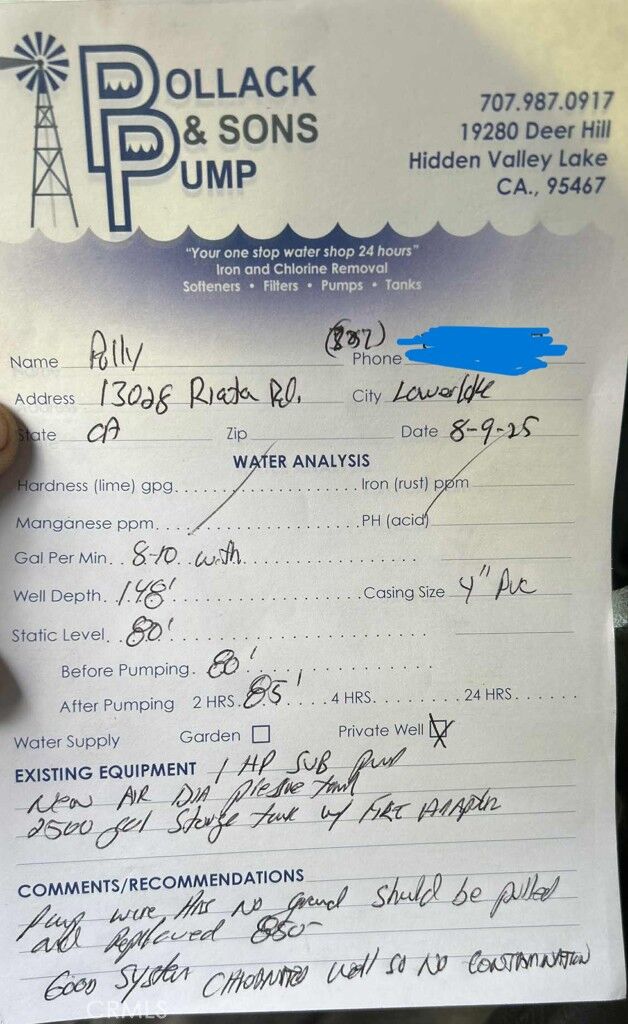 POLLACK
& SONS
PUMP
707.987.0917
19280 Deer Hill
Hidden Valley Lake
CA., 95467
"Your one stop water shop 24 hours"
Iron and Chlorine Removal
Softeners • Filters • Pumps • Tanks
Name Polly Phone
Address 13028 Riata Rd. City Lowerlake
State CA Zip Date 8-9-25
WATER ANALYSIS
Hardness (lime) gpg. Iron (rust) ppm
Manganese ppm. PH (acid)
Gal Per Min. 8-10 with
Well Depth. 148' Casing Size 4" PVC
Static Level. 80'
Before Pumping. 80'
After Pumping 2 HRS. 85' 4 HRS. 24 HRS.
Water Supply Garden Private Well X
EXISTING EQUIPMENT 1 HP SUB pump
New AIR DIA pressure tank
2500 gal Storage tank w/ FIRE
COMMENTS/RECOMMENDATIONS
Pump wire Has No ground should be pulled
and Replaced 850-
Good System well so No CONTAMINATION
CRMLS